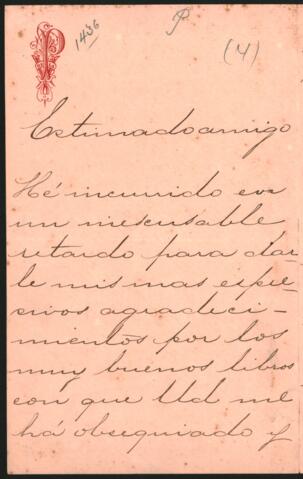 P
1436
P
(4)
Estimado amigo
Hé incurrido en
un inescusable
retardo para dar
le mis mas espre-
sivos agradeci-
mientos por los
muy buenos libros
con que Ud me
há obsequiado y